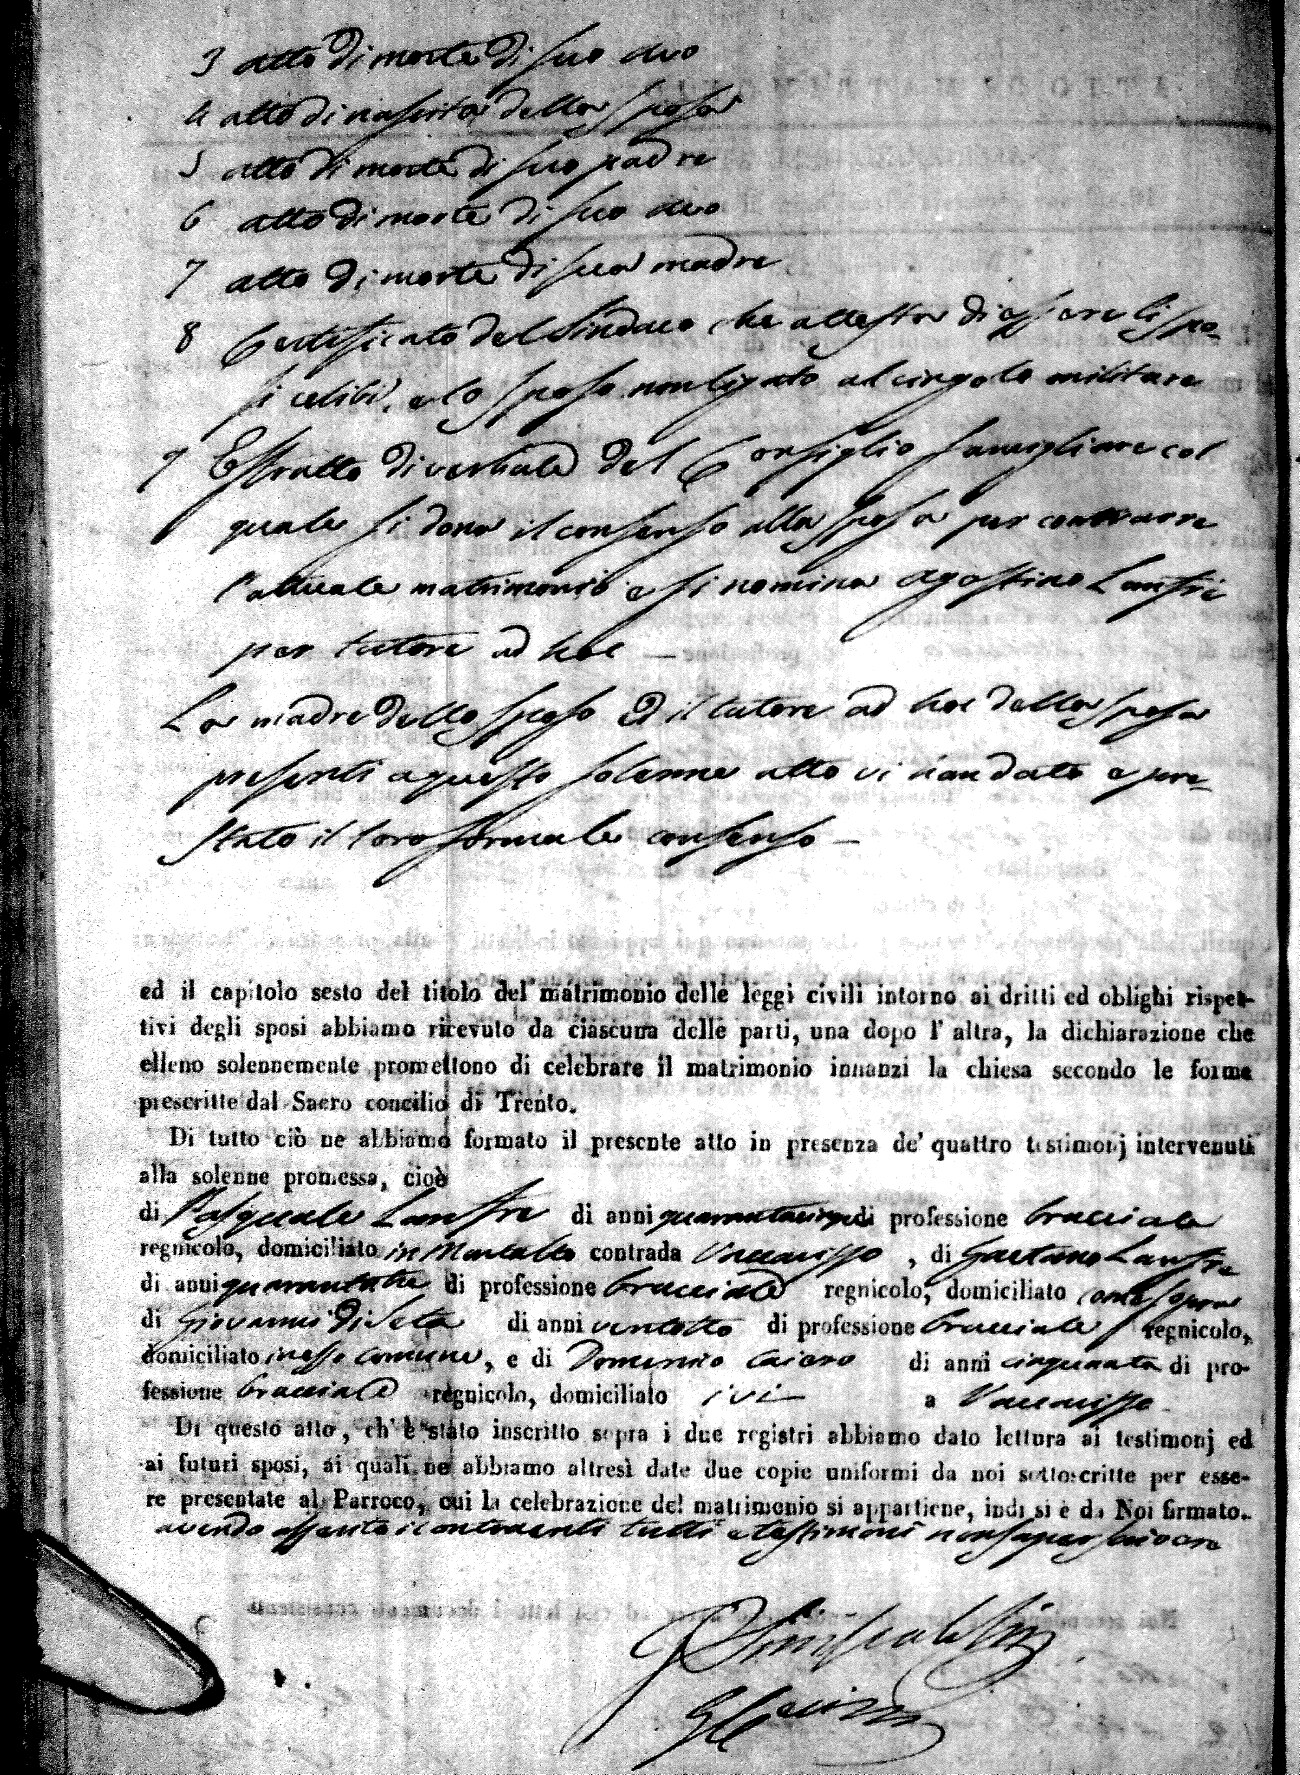 3 atto di morte di suo avo
4 atto di nascita della sposa
5 atto di morte di suo padre
6 atto di morte di suo avo
7 atto di morte di sua madre
8 Certificato del Sindaco che attesta di essere li spo-
si celibi, e lo sposo non ligato al cingolo militare
9 Estratto di verbale del Consiglio famigliare col
quale si dona il consenso alla sposa per contrarre
l'attuale matrimonio e si nomina Agostino Lanfri
per tutore ad hoc —
La madre dello sposo ed il tutore ad hoc della sposa
presenti a questo solenne atto vi han dato e pre-
stato il loro formale consenso —
ed il capitolo sesto del titolo del matrimonio delle leggi civili intorno ai dritti ed oblighi rispet-
tivi degli sposi abbiamo ricevuto da ciascuna delle parti, una dopo l' altra, la dichiarazione che
elleno solennemente promettono di celebrare il matrimonio innanzi la chiesa secondo le forme
prescritte dal Sacro concilio di Trento.
Di tutto ciò ne abbiamo formato il presente atto in presenza de' quattro testimonj intervenuti
alla solenne promessa, cioè
di Pasquale di anni quarantacinque di professione bracciale
regnicolo, domiciliato in Montalto contrada Vaccarisso, di Gaetano
di anni quarantatre di professione bracciale regnicolo, domiciliato come sopra
di Giovanni di Seta di anni ventotto di professione bracciale regnicolo,
domiciliato in esso comune, e di Domenico Caiaro di anni cinquanta di pro-
fessione bracciale regnicolo, domiciliato ivi a Vaccarisso
Di questo atto, ch' è stato inscritto sopra i due registri abbiamo dato lettura ai testimonj ed
ai futuri sposi, ai quali ne abbiamo altresì date due copie uniformi da noi sottoscritte per esse-
re presentate al Parroco, cui la celebrazione del matrimonio si appartiene, indi si è da Noi firmato.
avendo asserito i contraenti tutti e testimoni non saper scrivere